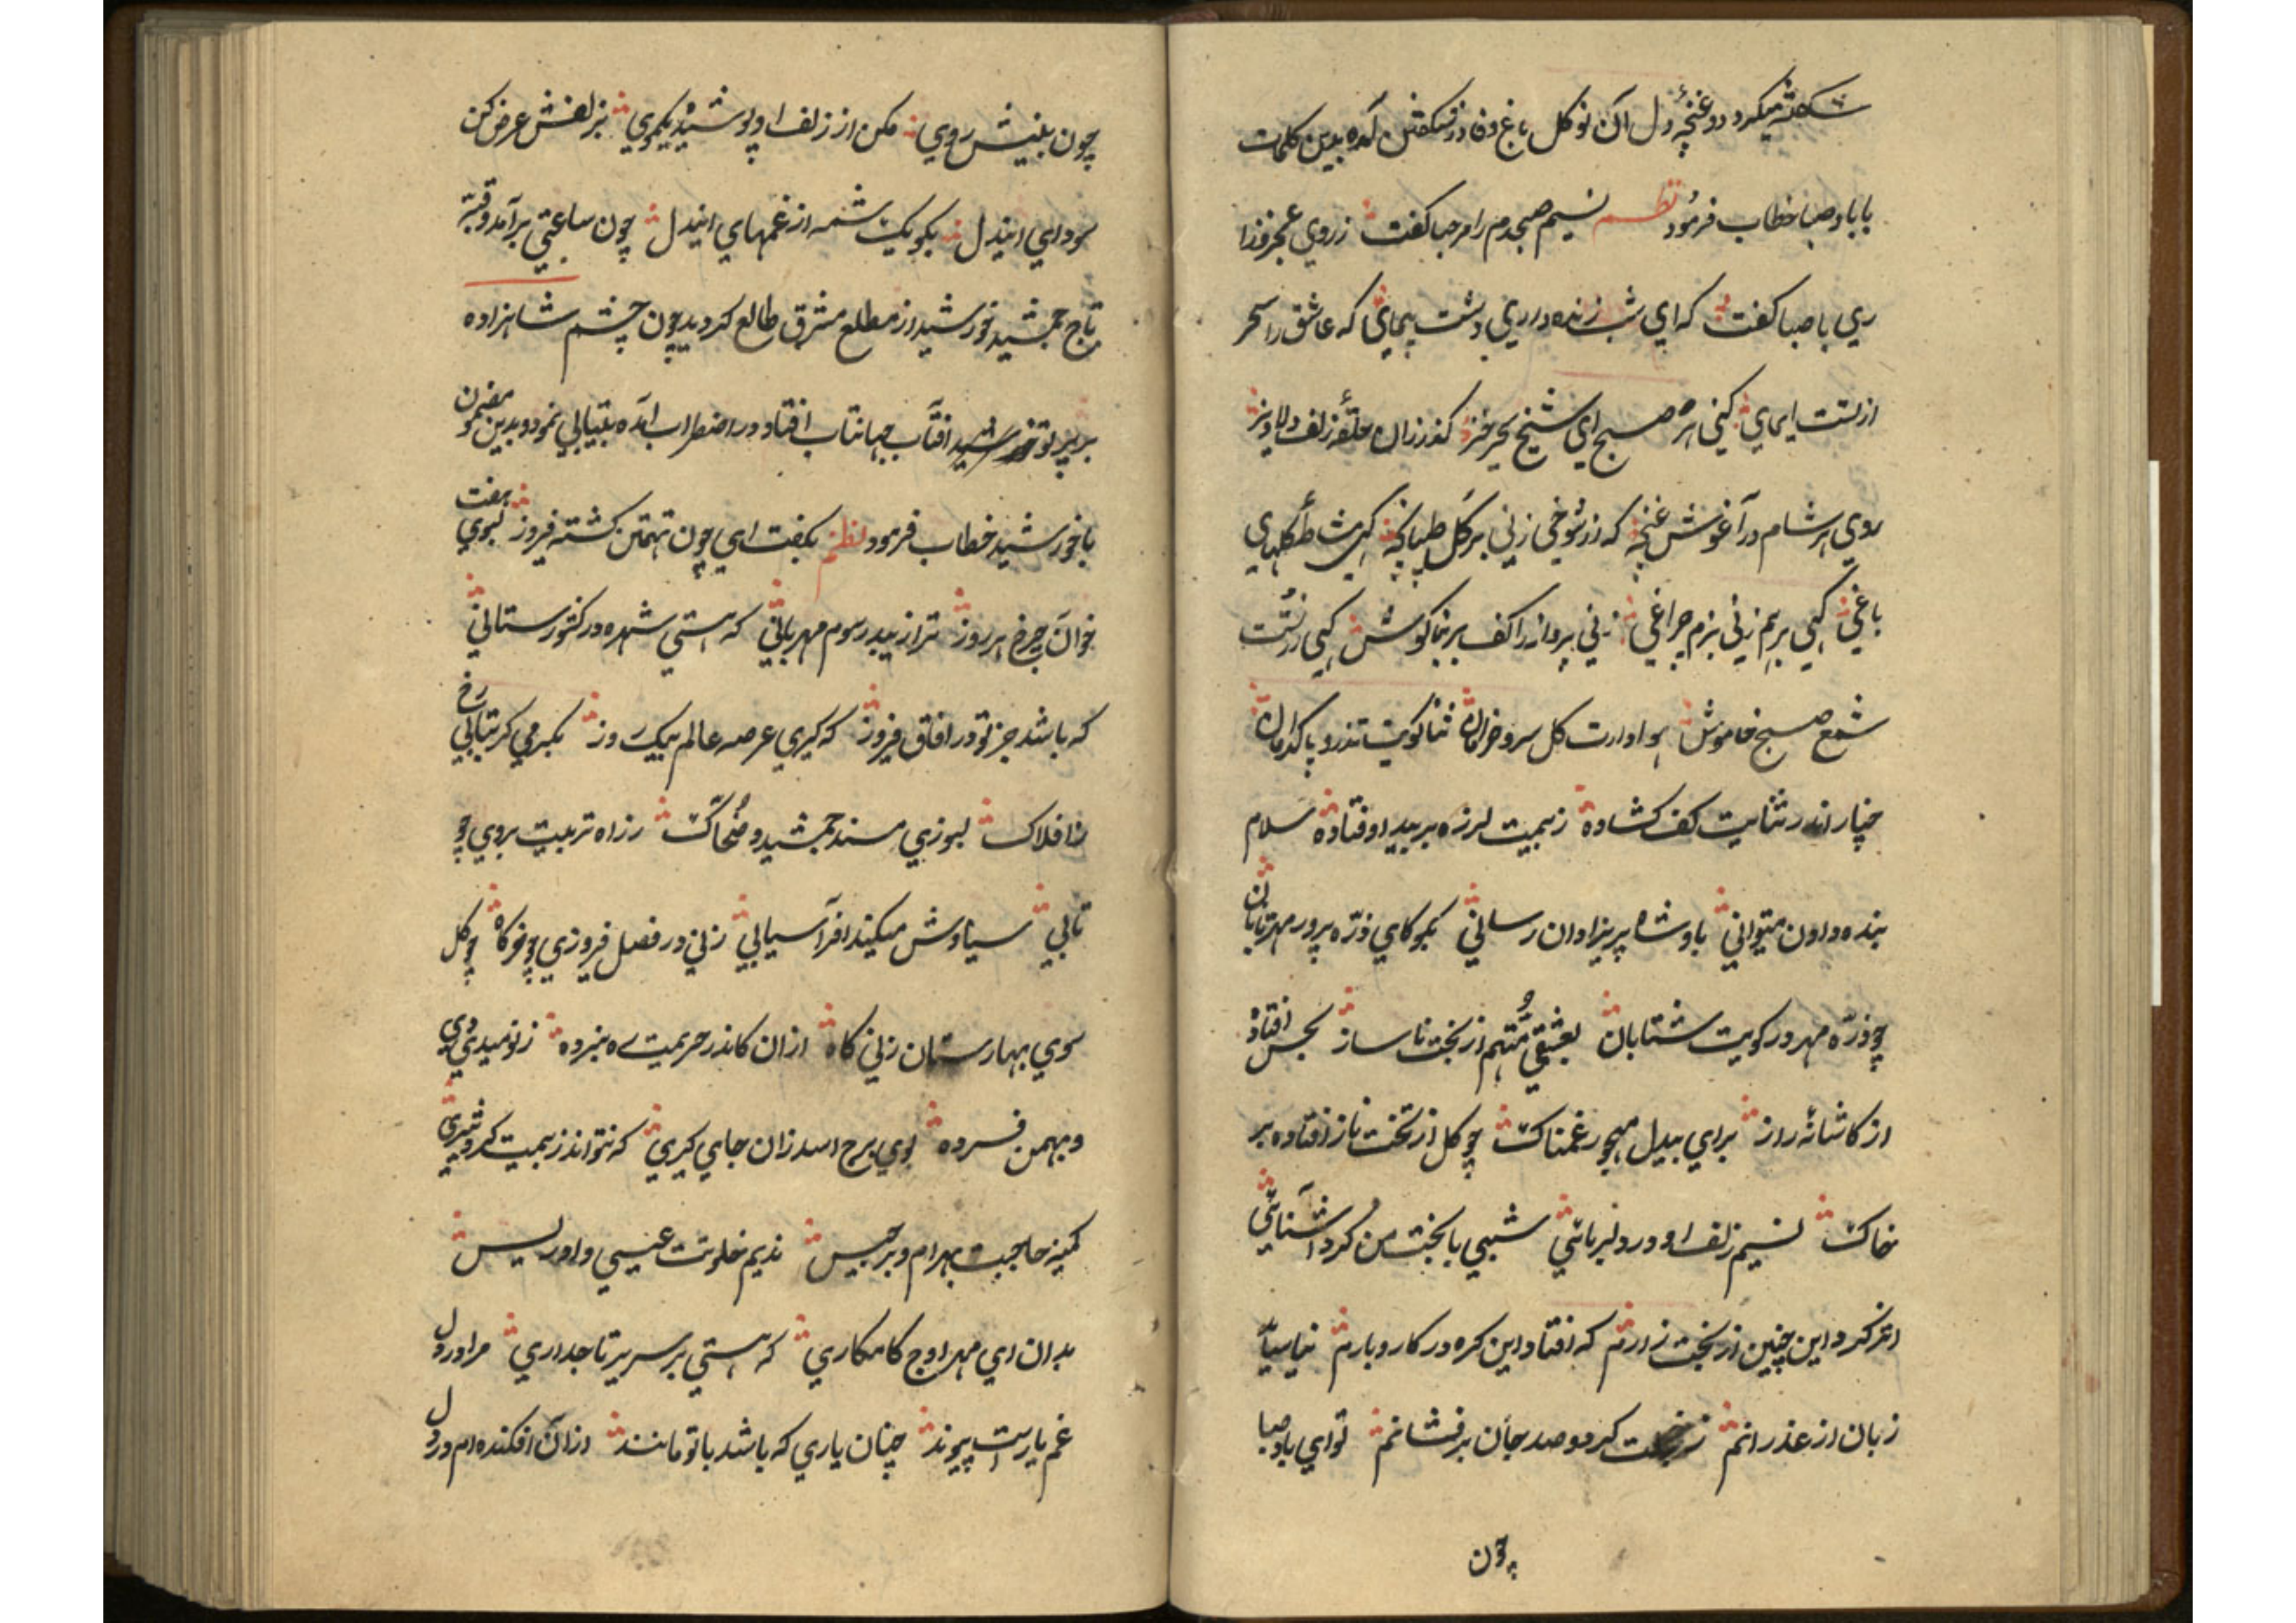 شکفته میکرد و غنچهٔ دل آن نوکل باغ وفا در شکفتن آمده بدین کلمات
با باد صبا خطاب فرمود نظم نسیم صبحدم را مرحبا کفت ز روی عجز فزا
ری با صبا کفت که ای شب زنده داری دشت پیمای که عاشق را سحر
از تست ایمای کنی هر صبح ای شیخ سحر خیز کذر زان حلقهٔ زلف دلاویز
روی هر شام در آغوش غنچه که از شوخی زنی بر کل طپانچه کهی شط کلهای
باغی کهی برهم زنی بزم چراغی زنی پروانه را کف بر بناکوش کهی از تست
شمع صبح خاموش هوادارت کل سرو خرامان ثنا کویت تذرو پاکدامان
چنار اندر ثنایت کف کشاده ز بیمت لرزه بر بید اوفتاده سلام
بنده دادن میتوانی باد شاه پریزادان رسانی بکو کای ذره پرور مهر تابان
چو ذره مهر در کویت شتابان بعشقی متهم از بخت ناساز بحبس افتاده
از کاشانهٔ راز برای بیدل مهجور غمناک چو کل از تخت ناز افتاده بر
خاک نسیم زلف او در دلربائی شبی با بخت من کرد آشنائی
اثر کرد این چنین از بخت زارم که افتاد این کره در کار و بارم بیا سیا
زبان از عذر رانم ز بخت کر دو صد جان برفشانم تو ای باد صبا
چون
چون بلینیش روی مکن از زلف او پوشیده یکموی بزلفش عرض کن
سودای ایندل بکو یک شمه از غمهای ایندل چون ساعتی برآمد و قبه
تاج جمشید خورشید از مطلع مشرق طالع کردید چون چشم شاهزاده
بر پرتو آفتاب جهانتاب افتاد در اضطراب آمده بیتابی نمود و بدین مضمون
با خورشید خطاب فرمود نظم بکفت ای چون تهمتن کشته فیروز بسوی هفت
خوان چرخ هر روز ترا زیبد رسوم مهربانی که هستی شهره در کشور ستانی
که باشد جز تو در آفاق فیروز که کیری عرصه عالم بیک روز بکرمی کر بتابی رخ
ز افلاک بسوزی مسند جمشید و ضحاک ز راه تربیت بروی چو
تابی سیاوش میکند افراسیابی زنی در فصل فروزی چو خرکاه چو کل
سوی بهارستان زنی کاه ازان کاندر حریمت ره نبرده ز نومیدی دی
و بهمن فسرده بوی برج اسد زان جای کیری که نتواند ز بیمت کرد شیری
کمینه حاجبت بهرام و برجیس ندیم خلوتت عیسی و ادریس
بدان ای مهر اوج کامکاری که هستی بر سریر تاجداری مرا در دل
غم یاریست پیوند چنان یاری که باشد با تو مانند ازان افکنده ام در دل